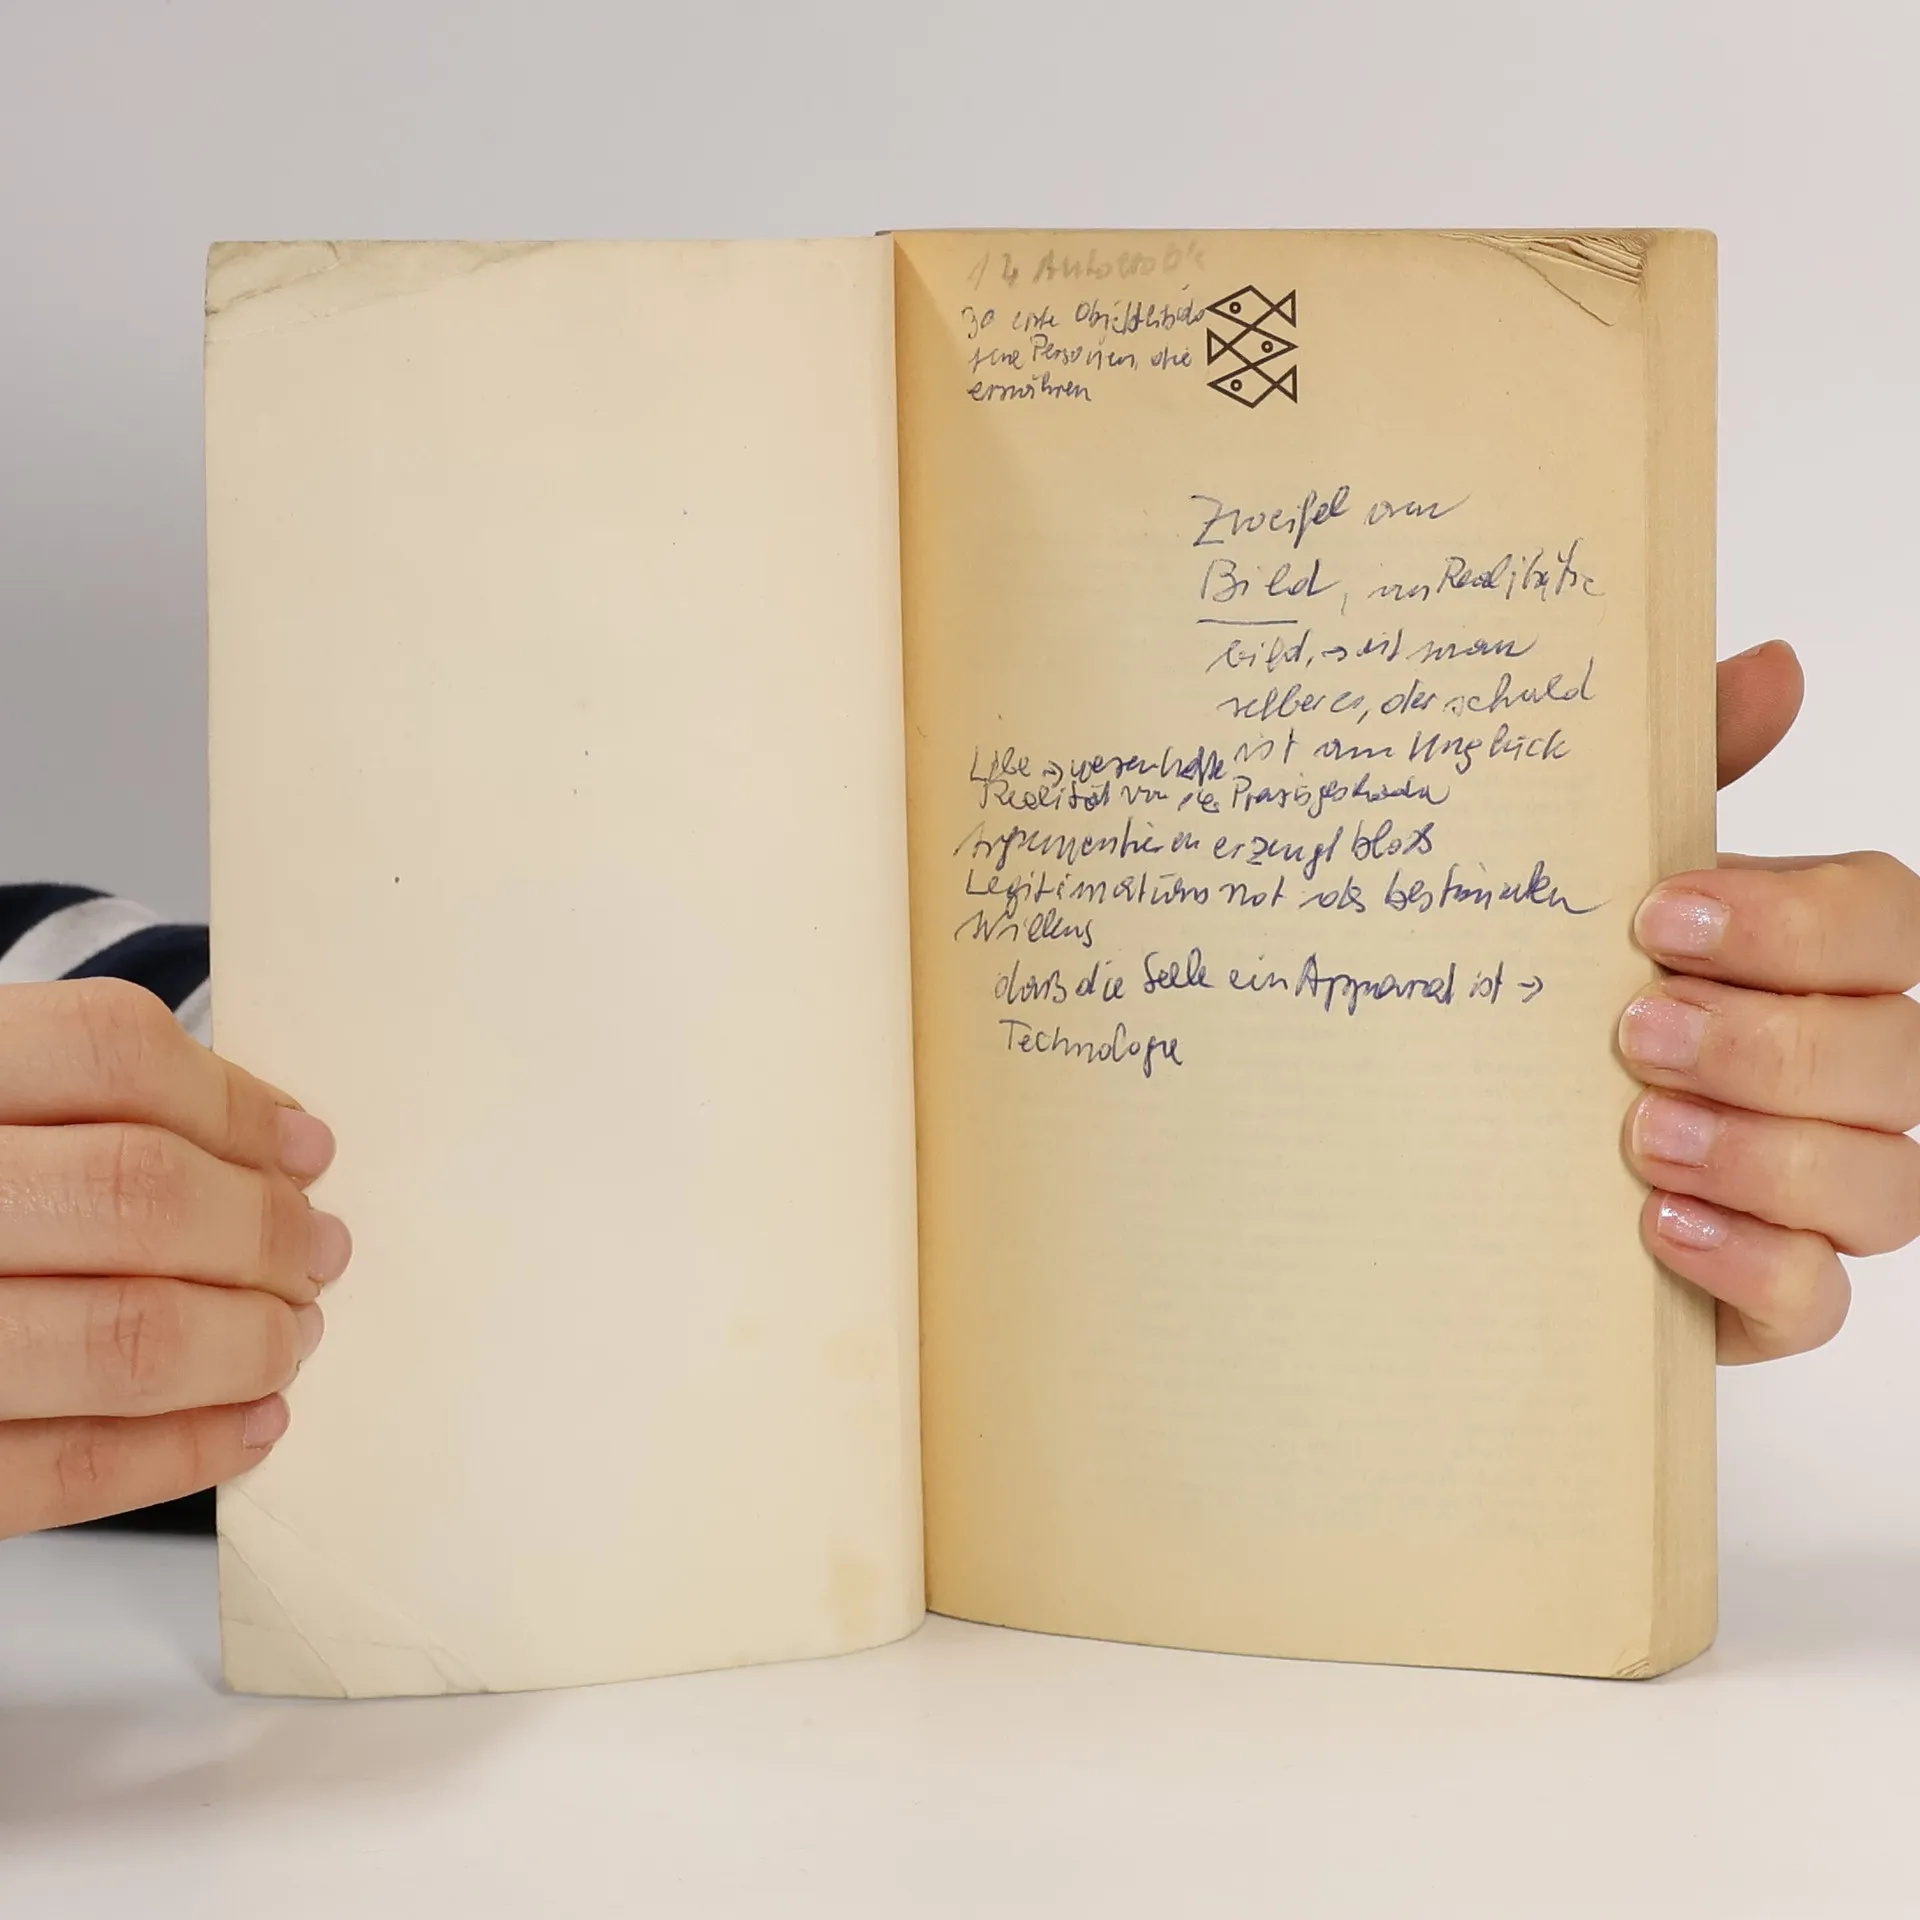 12
30 erste Objektlibido
Personen, die
ernähren
Zweifel am
Bild, am Realitäts
bild, → ist man
selber es, der schuld
ist am Unglück
Liebe → wesenhafte
Realität von
Argumentieren erzeugt bloß
Legitimationsnot des bestimmten
Willens
daß die Seele ein Apparat ist →
Technologie